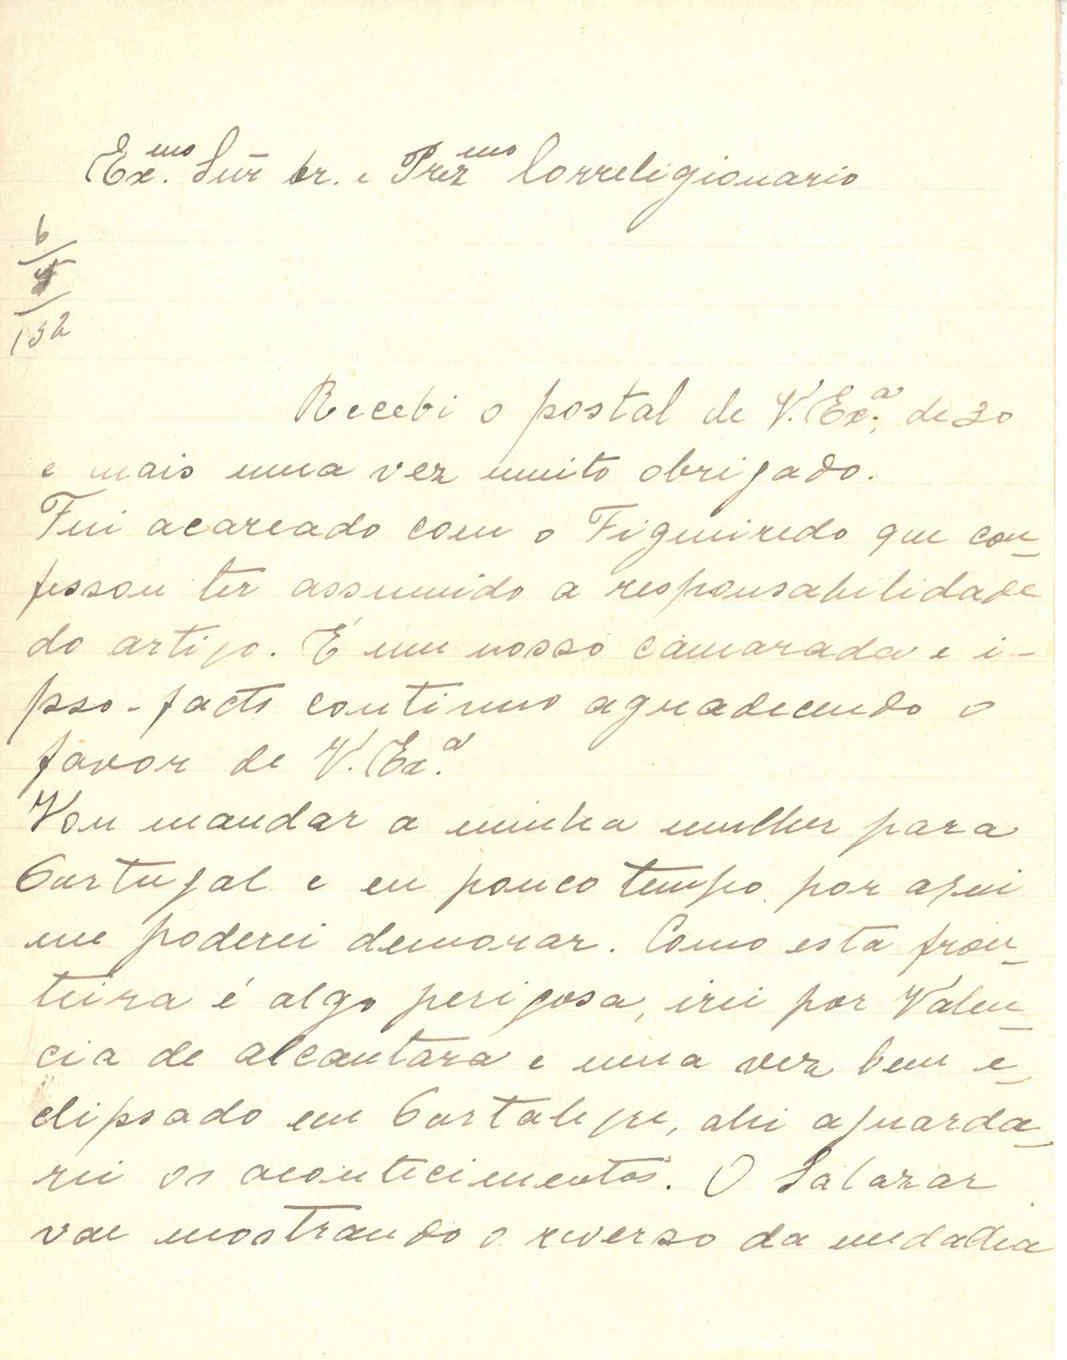 Ex.mo Snr Dr. e Prezmo Correligionario
6
4
132
Recebi o postal de V. Ex.a, de 30
e mais uma vez muito obrigado.
Fui acareado com o Figueiredo que con-
fessou ter assumido a responsabilidade
do artigo. É um nosso camarada e i-
pso-facto continuo agradecendo o
favor de V. Ex.a
Vou mandar a minha mulher para
Portugal e eu pouco tempo por aqui
me poderei demorar. Como esta fron-
teira é algo perigosa, irei por Valen-
cia de Alcantara e uma vez bem e-
clipsado em Portalegre, ahi aguarda-
rei os acontecimentos. O Salazar
vae mostrando o reverso da medalha